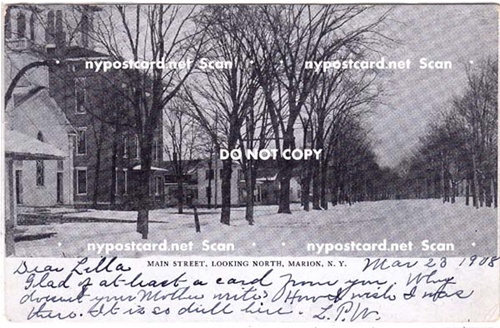 nypostcard.net Scan nypostcard.net Scan
DO NOT COPY
nypostcard.net Scan nypostcard.net Scan
MAIN STREET, LOOKING NORTH, MARION, N. Y.
Dear Lella Mar 23 1908
Glad of at least a card from you. Why
doesn't your Mother write? How I wish I was
there. It is so dull here. L.P.W.